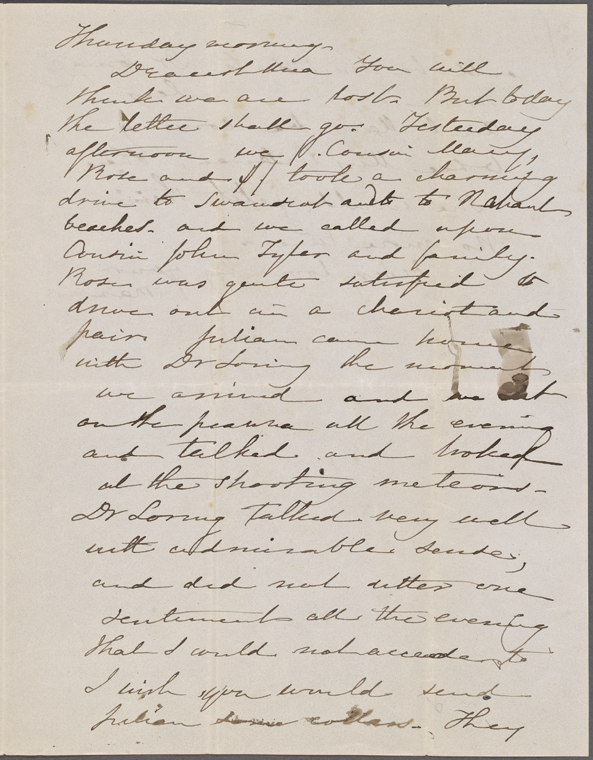 Thursday morning.
Dearest Una You will
think we are lost. But today
the letter shall go. Yesterday
afternoon we, Cousin Mary,
Rose and I took a charming
drive to Swampscot and to Nahant
beaches. and we called upon
Cousin John Tyler and family.
Rose was quite satisfied to
drive out in a chariot and
pair. Julian came home
with Dr Loring the moment
we arrived and we sat
on the piazza all the evening
and talked and looked
at the shooting meteors.
Dr Loring talked very well
with admirable sense,
and did not utter one
sentiment all the evening
that I could not accede to
I wish you would send
Julian some collars. They